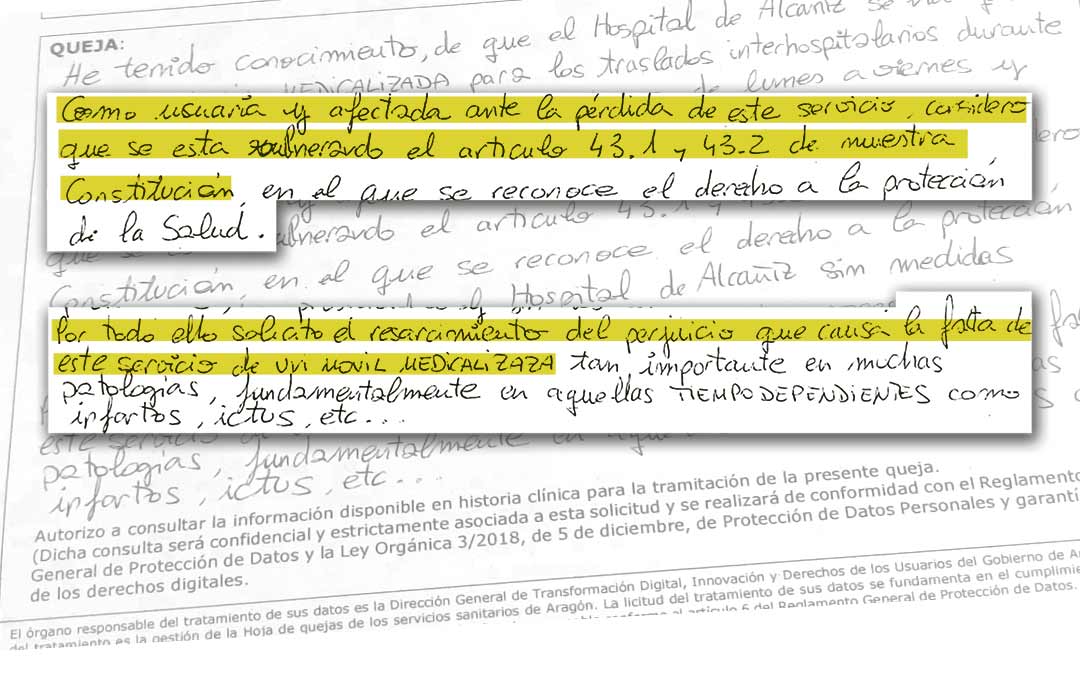 QUEJA:
He tenido conocimiento, de que el Hospital de Alcañiz se
MEDICALIZADA para los traslados interhospitalarios durante
de lunes a viernes y
Como usuaria y afectada ante la pérdida de este servicio, considero
que se esta vulnerando el articulo 43.1 y 43.2 de nuestra
Constitución, en el que se reconoce el derecho a la protección
de la Salud.
vulnerando el articulo 43.1 y
que se reconoce el derecho a la protección
Constitución, en el que se
Hospital de Alcañiz sin medidas
Por todo ello solicito el resarcimiento del perjuicio que causa la falta de
este servicio de UVI MOVIL MEDICALIZAZA tan importante en muchas
patologias, fundamentalmente en aquellas TIEMPODEPENDIENTES como
infartos, ictus, etc...
este servicio
patologias, fundamentalmente en
infartos, ictus, etc...
Autorizo a consultar la información disponible en historia clínica para la tramitación de la presente queja.
(Dicha consulta será confidencial y estrictamente asociada a esta solicitud y se realizará de conformidad con el Reglamento
General de Protección de Datos y la Ley Orgánica 3/2018, de 5 de diciembre, de Protección de Datos Personales y garantí
de los derechos digitales.
El órgano responsable del tratamiento de sus datos es la Dirección General de Transformación Digital, Innovación y Derechos de los Usuarios del Gobierno de A
del tratamiento es la gestión de la Hoja de quejas de los servicios sanitarios de Aragón. La licitud del tratamiento de sus datos se fundamenta en el cumplimie
conforme al artículo 6 del Reglamento General de Protección de Datos.